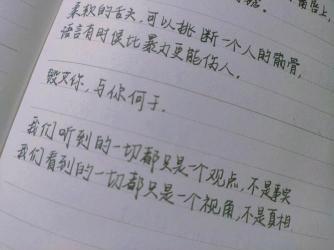 柔软的舌头,可以挑断一个人的筋骨,
语言有时候比暴力更能伤人。
毁灭你,与你何干.
我们听到的一切都只是一个观点,不是事实
我们看到的一切都只是一个视角,不是真相